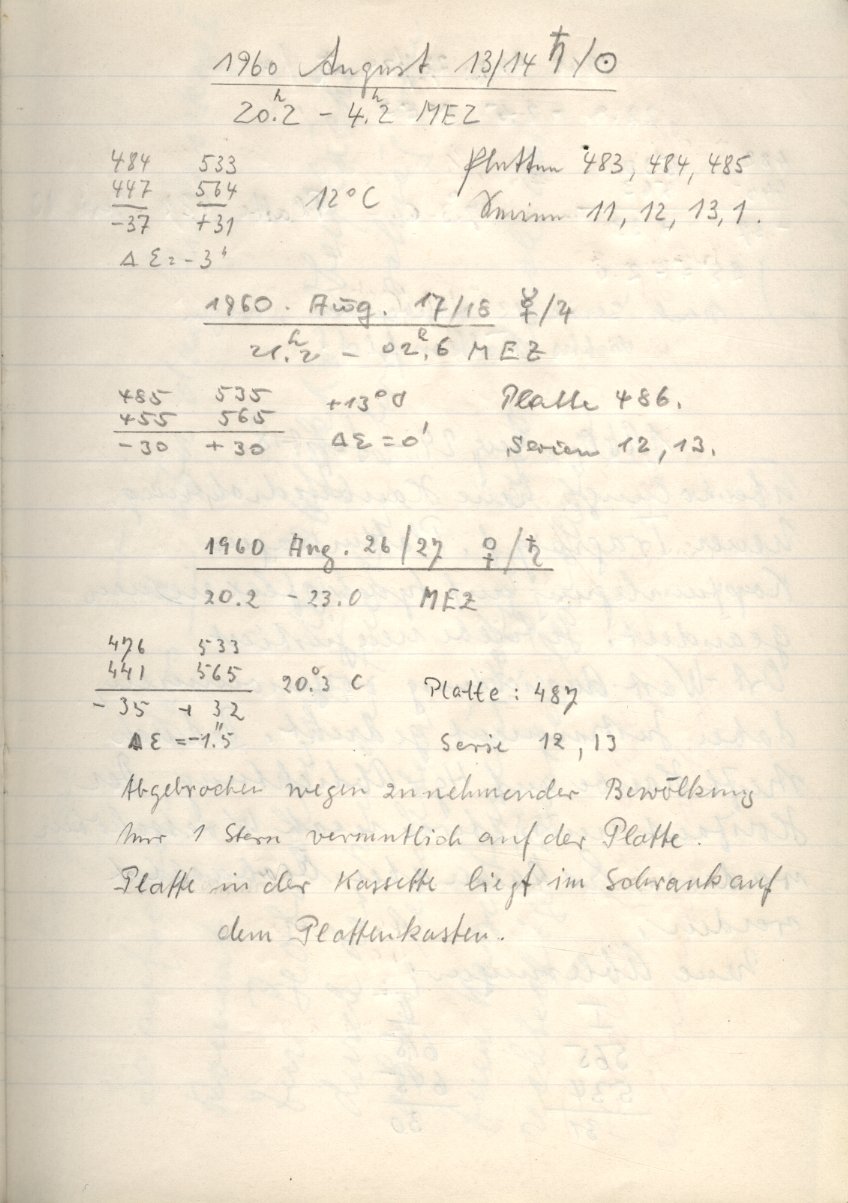 1960 August 13/14 ♄/☉
20.ʰ2 – 4.ʰ2 MEZ
484 533 Platten 483, 484, 485
447 564 12°C
-37 +31 Serien 11, 12, 13, 1.
Δ Ɛ = - 3"
1960. Aug. 17/18 ☿/♃
21.ʰ2 – 02.ʰ6 MEZ
485 535 +13°C Platte 486.
455 565
- 30 + 30 ΔƐ = 0' Serien 12, 13.
1960 Aug. 26/27 ♀/♄
20.2 – 23.0 MEZ
476 533
441 565 20.°3 C Platte: 487
- 35 + 32
ΔƐ = -1."5 Serie 12, 13
Abgebrochen wegen zunehmender Bewölkung
Nur 1 Stern vermutlich auf der Platte.
Platte in der Kassette liegt im Schrank auf
dem Plattenkasten.